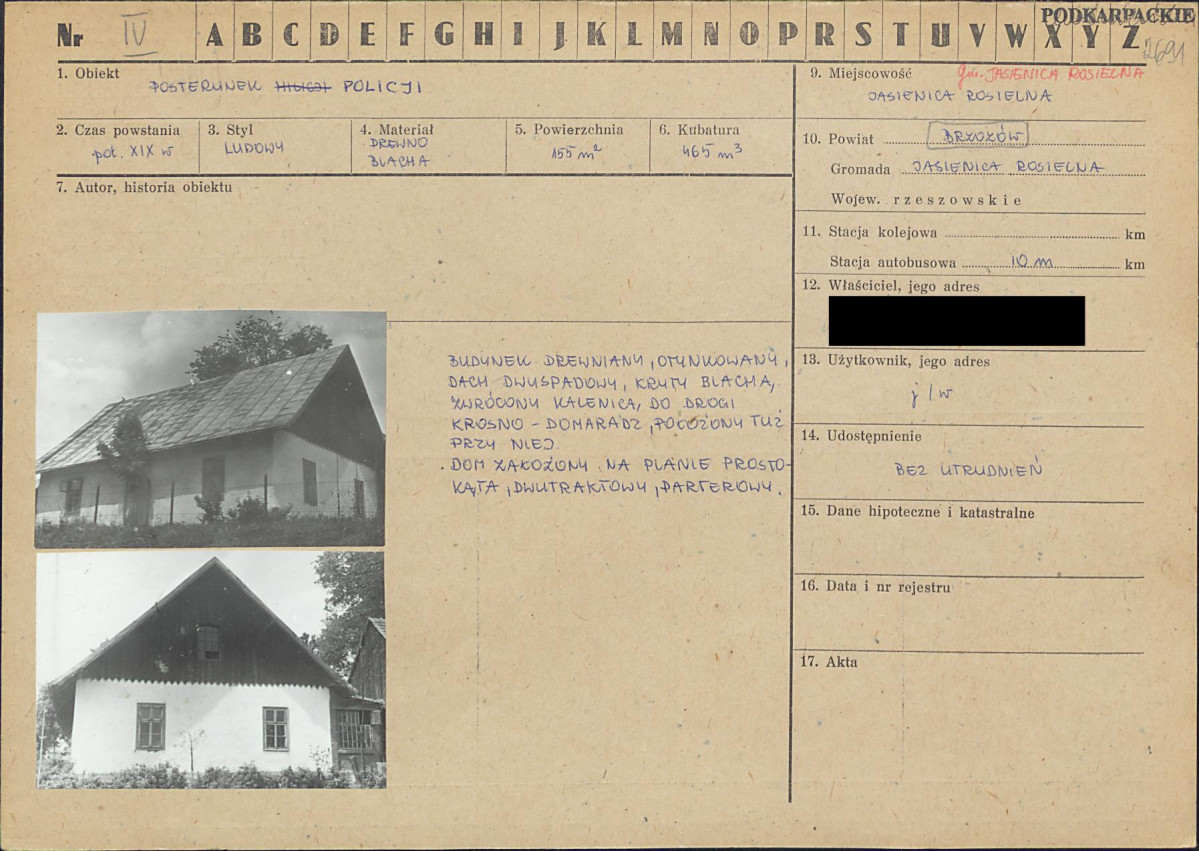 Nr IV A B C D E F G H I J K L M N O P R S T U V W X Y Z
PODKARPACKIE
2691
1. Obiekt
POSTERUNEK MILICJI POLICJI
2. Czas powstania
poł. XIX w
3. Styl
LUDOWY
4. Materiał
DREWNO
BLACHA
5. Powierzchnia
155 m²
6. Kubatura
465 m³
7. Autor, historia obiektu
BUDYNEK DREWNIANY, OTYNKOWANY,
DACH DWUSPADOWY, KRYTY BLACHĄ,
ZWRÓCONY KALENICĄ, DO DROGI
KROSNO – DOMARADZ, POŁOŻONY TUŻ
PRZY NIEJ.
DOM ZAŁOŻONY NA PLANIE PROSTO-
KĄTA, DWUTRAKTOWY, PARTEROWY.
9. Miejscowość gm. JASIENICA ROSIELNA
JASIENICA ROSIELNA
10. Powiat BRZOZÓW
Gromada JASIENICA ROSIELNA
Wojew. rzeszowskie
11. Stacja kolejowa km
Stacja autobusowa 10 m km
12. Właściciel, jego adres
13. Użytkownik, jego adres
j/w
14. Udostępnienie
BEZ UTRUDNIEŃ
15. Dane hipoteczne i katastralne
16. Data i nr rejestru
17. Akta